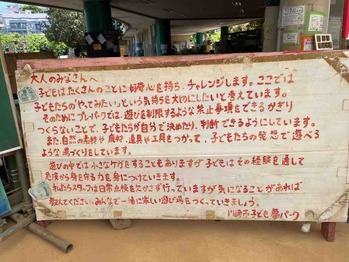 大人のみなさんへ
子どもはたくさんのことに好奇心を持ち、チャレンジします。ここでは
子どもたちの「やってみたいっ」という気持ちを大切にしたいと考えています。
そのためにプレーパークでは、遊びを制限するような禁止事項をできるかぎり
つくらないことで、子どもたちが自分で決めたり、判断できるようにしています。
また、自然の素材や廃材、道具や工具をつかって、子どもたちの発想で遊べる
ような場づくりをしています。
遊びの中では小さなケガをすることもありますが子どもはその経験を通して
危険から身を守る力を身につけていきます。
私たちスタッフは日常点検を欠かさず行っていますが気になることがあれば
教えてください。みんなで一緒に楽しい遊び場をつくっていきましょう。
川崎市子ども夢パーク